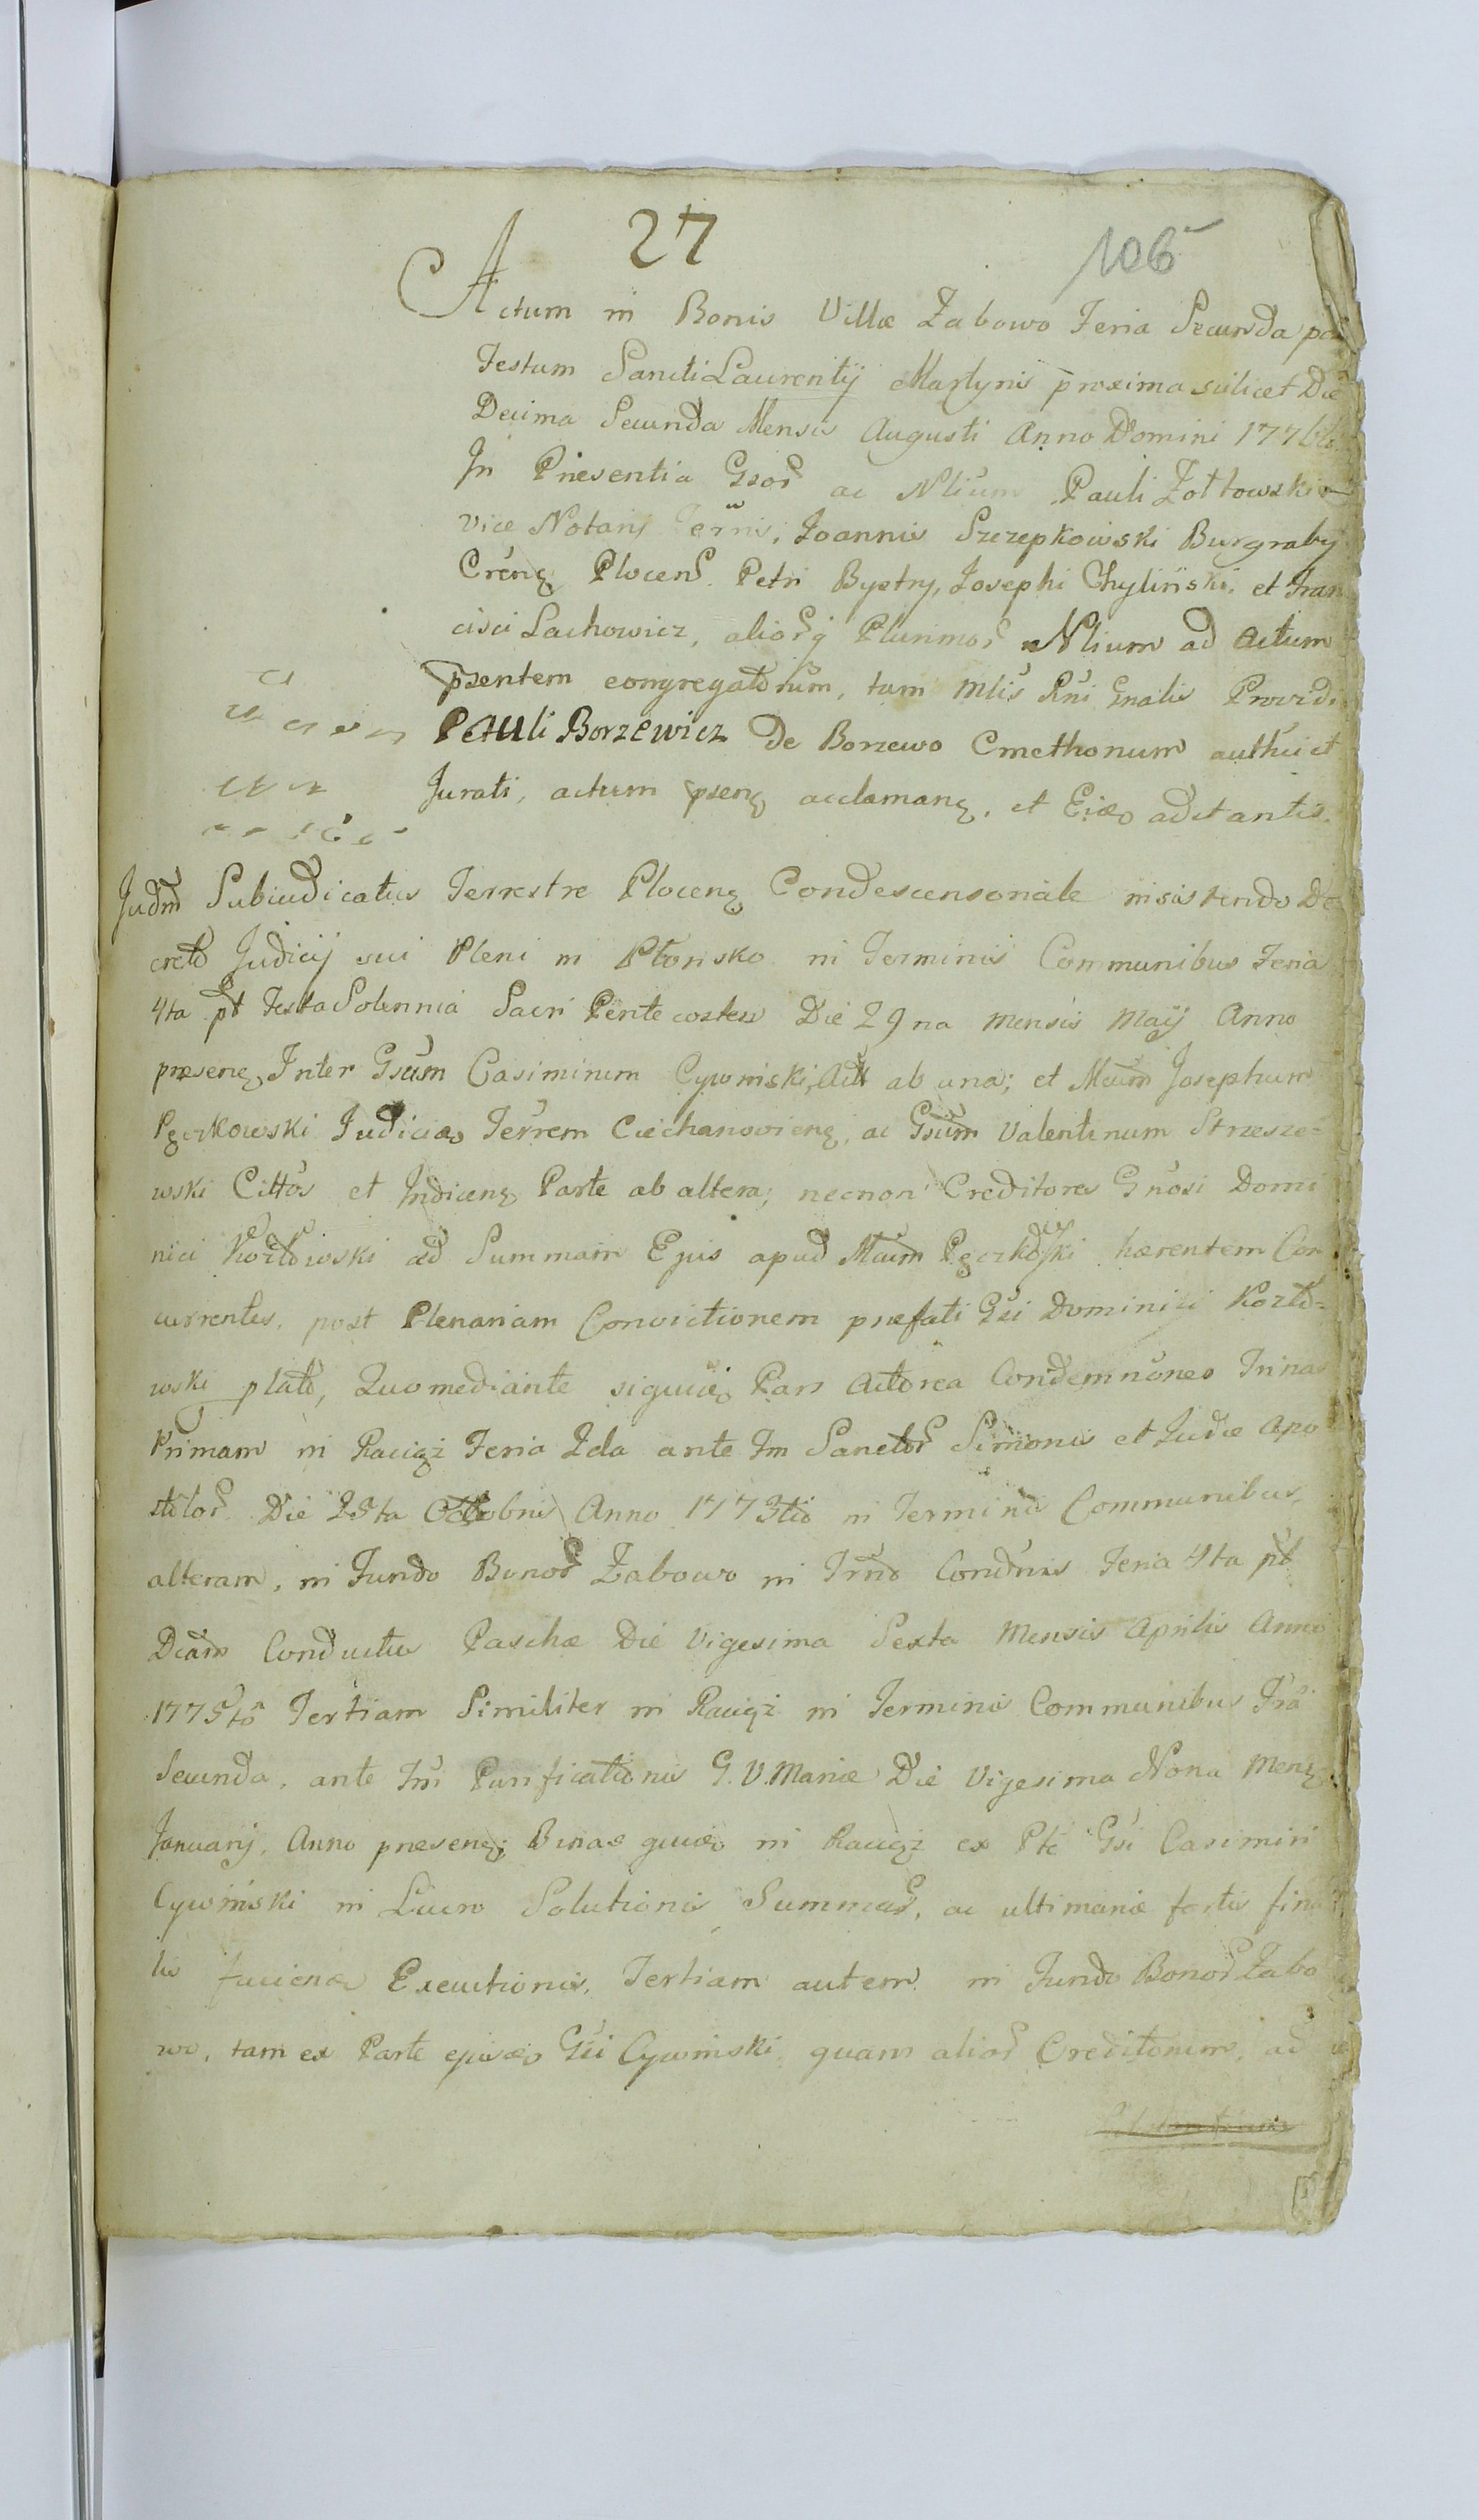 27
106
Actum in Bonis Villæ Zabowo Feria Secunda
Festum Sancti Laurentij Martyris proxima scilicet Die
Decima Secunda Mensis Augusti Anno Domini
In Præsentia Gsor ac Nlium Pauli Żołtowski
vice Notarij Terris, Joannis Szczepkowski Burgrabij
Crén Plocens. Petri Bystry, Josephi Chyliński, et Fran
cisci Lachowicz, aliorq Plurimor Nlium ad Actum
psentem congregatorum, tam Mlis Rni Gnalis Providi
Pauli Borzewicz de Borzewo Cmethonum authei et
Jurati, actum psenę acclamanę, et adstantis.
Judm Subiudicatus Terrestre Plocenę Condescensoriale insistendo De
creto Judicij sui Pleni in Płonsko in Terminis Communibus Feria
4ta pt Festa Solennia Sacri Pentecostes Die 29na Mensis Maij Anno
præsenę Inter Gsum Casimirum Cywinski, Act ab una; et Mcum Josephum
Pęczkowski Judicem Terrem Ciechanovienę, ac Gsum Valentinum Strzesze=
wski Cittos et Indicenę Parte ab altera; necnon Creditores Gnosi Domi
nici Kozłowski ad Summam Ejus apud Mcum hærentem Con
currentes, post Plenariam Convictionem præfati Gsi Dominici Kozło=
wski plato, Quo mediante Pars Actorea Condemnones Trinas
Primam in Raciąż Feria 2da ante Fm Sanctor Simonis et Judæ Apo
stolor Die 25ta Octobris Anno 1773tio in Terminis Communibus,
alteram, in Fundo Bonor Zabowo in Trno Condnis Feria 4ta pt
Dcam Conductus Paschæ Die Vigesima Sexta Mensis Aprilis Anno
1775to Tertiam Similiter in Raciąż in Terminis Communibus Fra
Secunda, ante Fm Purificationis G. V. Mariæ Die Vigesima Nona Mensę
Januarij, Anno præsenę; Binas in Raciąż ex Pte Gsi Casimiri
Cywiński in Lucro Solutionis Summar, ac ultimariæ fina
lis Executionis, Tertiam autem in Fundo Bonor Zabo
wo, tam ex Parte Gsi Cywinski, quam alior Creditorum, ad